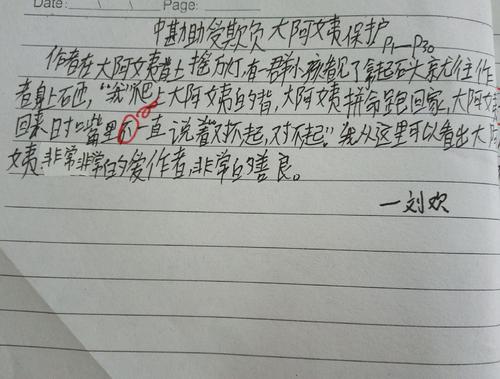 Date: Page:
中勘助受欺负 大阿姨保护 P1—P30
作者在大阿姨背上捨万灯,有一群小孩看见了拿起石头就往作
者身上石西,“我”爬上大阿姨的背,大阿姨拼命跑回家,大阿姨
回来时嘴里不一直说着对不起,对不起”。我从这里可以看出大阿
姨非常非常的爱作者,非常的善良。
—刘欢